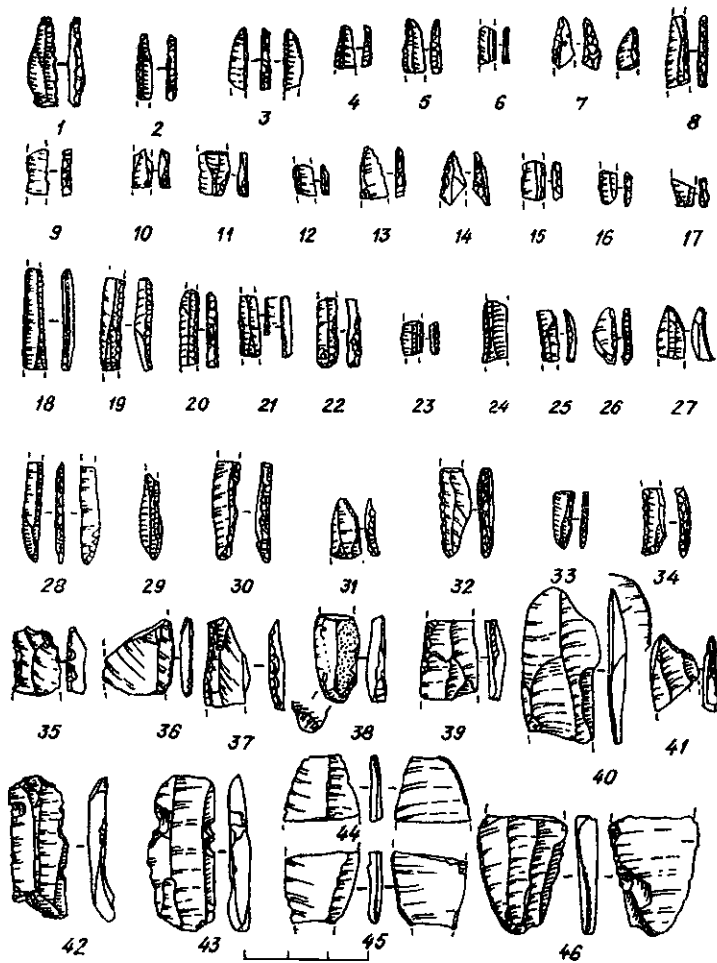 1 2 3 4 5 6 7 8
9 10 11 12 13 14 15 16 17
18 19 20 21 22 23 24 25 26 27
28 29 30 31 32 33 34
35 36 37 38 39 40 41
42 43 44 45 46